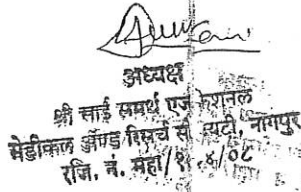 अध्यक्ष
श्री साई समर्थ एज्युकेशनल
मेडीकल ॲण्ड रिसर्च सोसायटी, नागपुर
रजि. नं. महा/